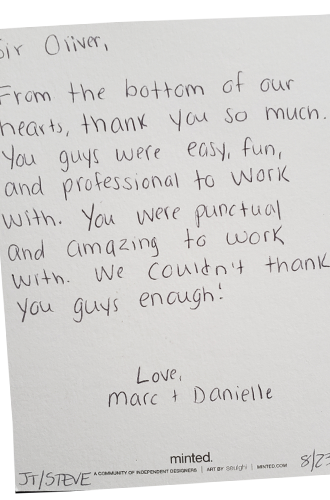 Sir Oliver,
From the bottom of our
hearts, thank you so much.
You guys were easy, fun,
and professional to work
with. You were punctual
and amazing to work
with. We couldn't thank
you guys enough!
Love,
Marc + Danielle
minted.
A COMMUNITY OF INDEPENDENT DESIGNERS | ART BY seulghi | MINTED.COM
JT/STEVE
8/23